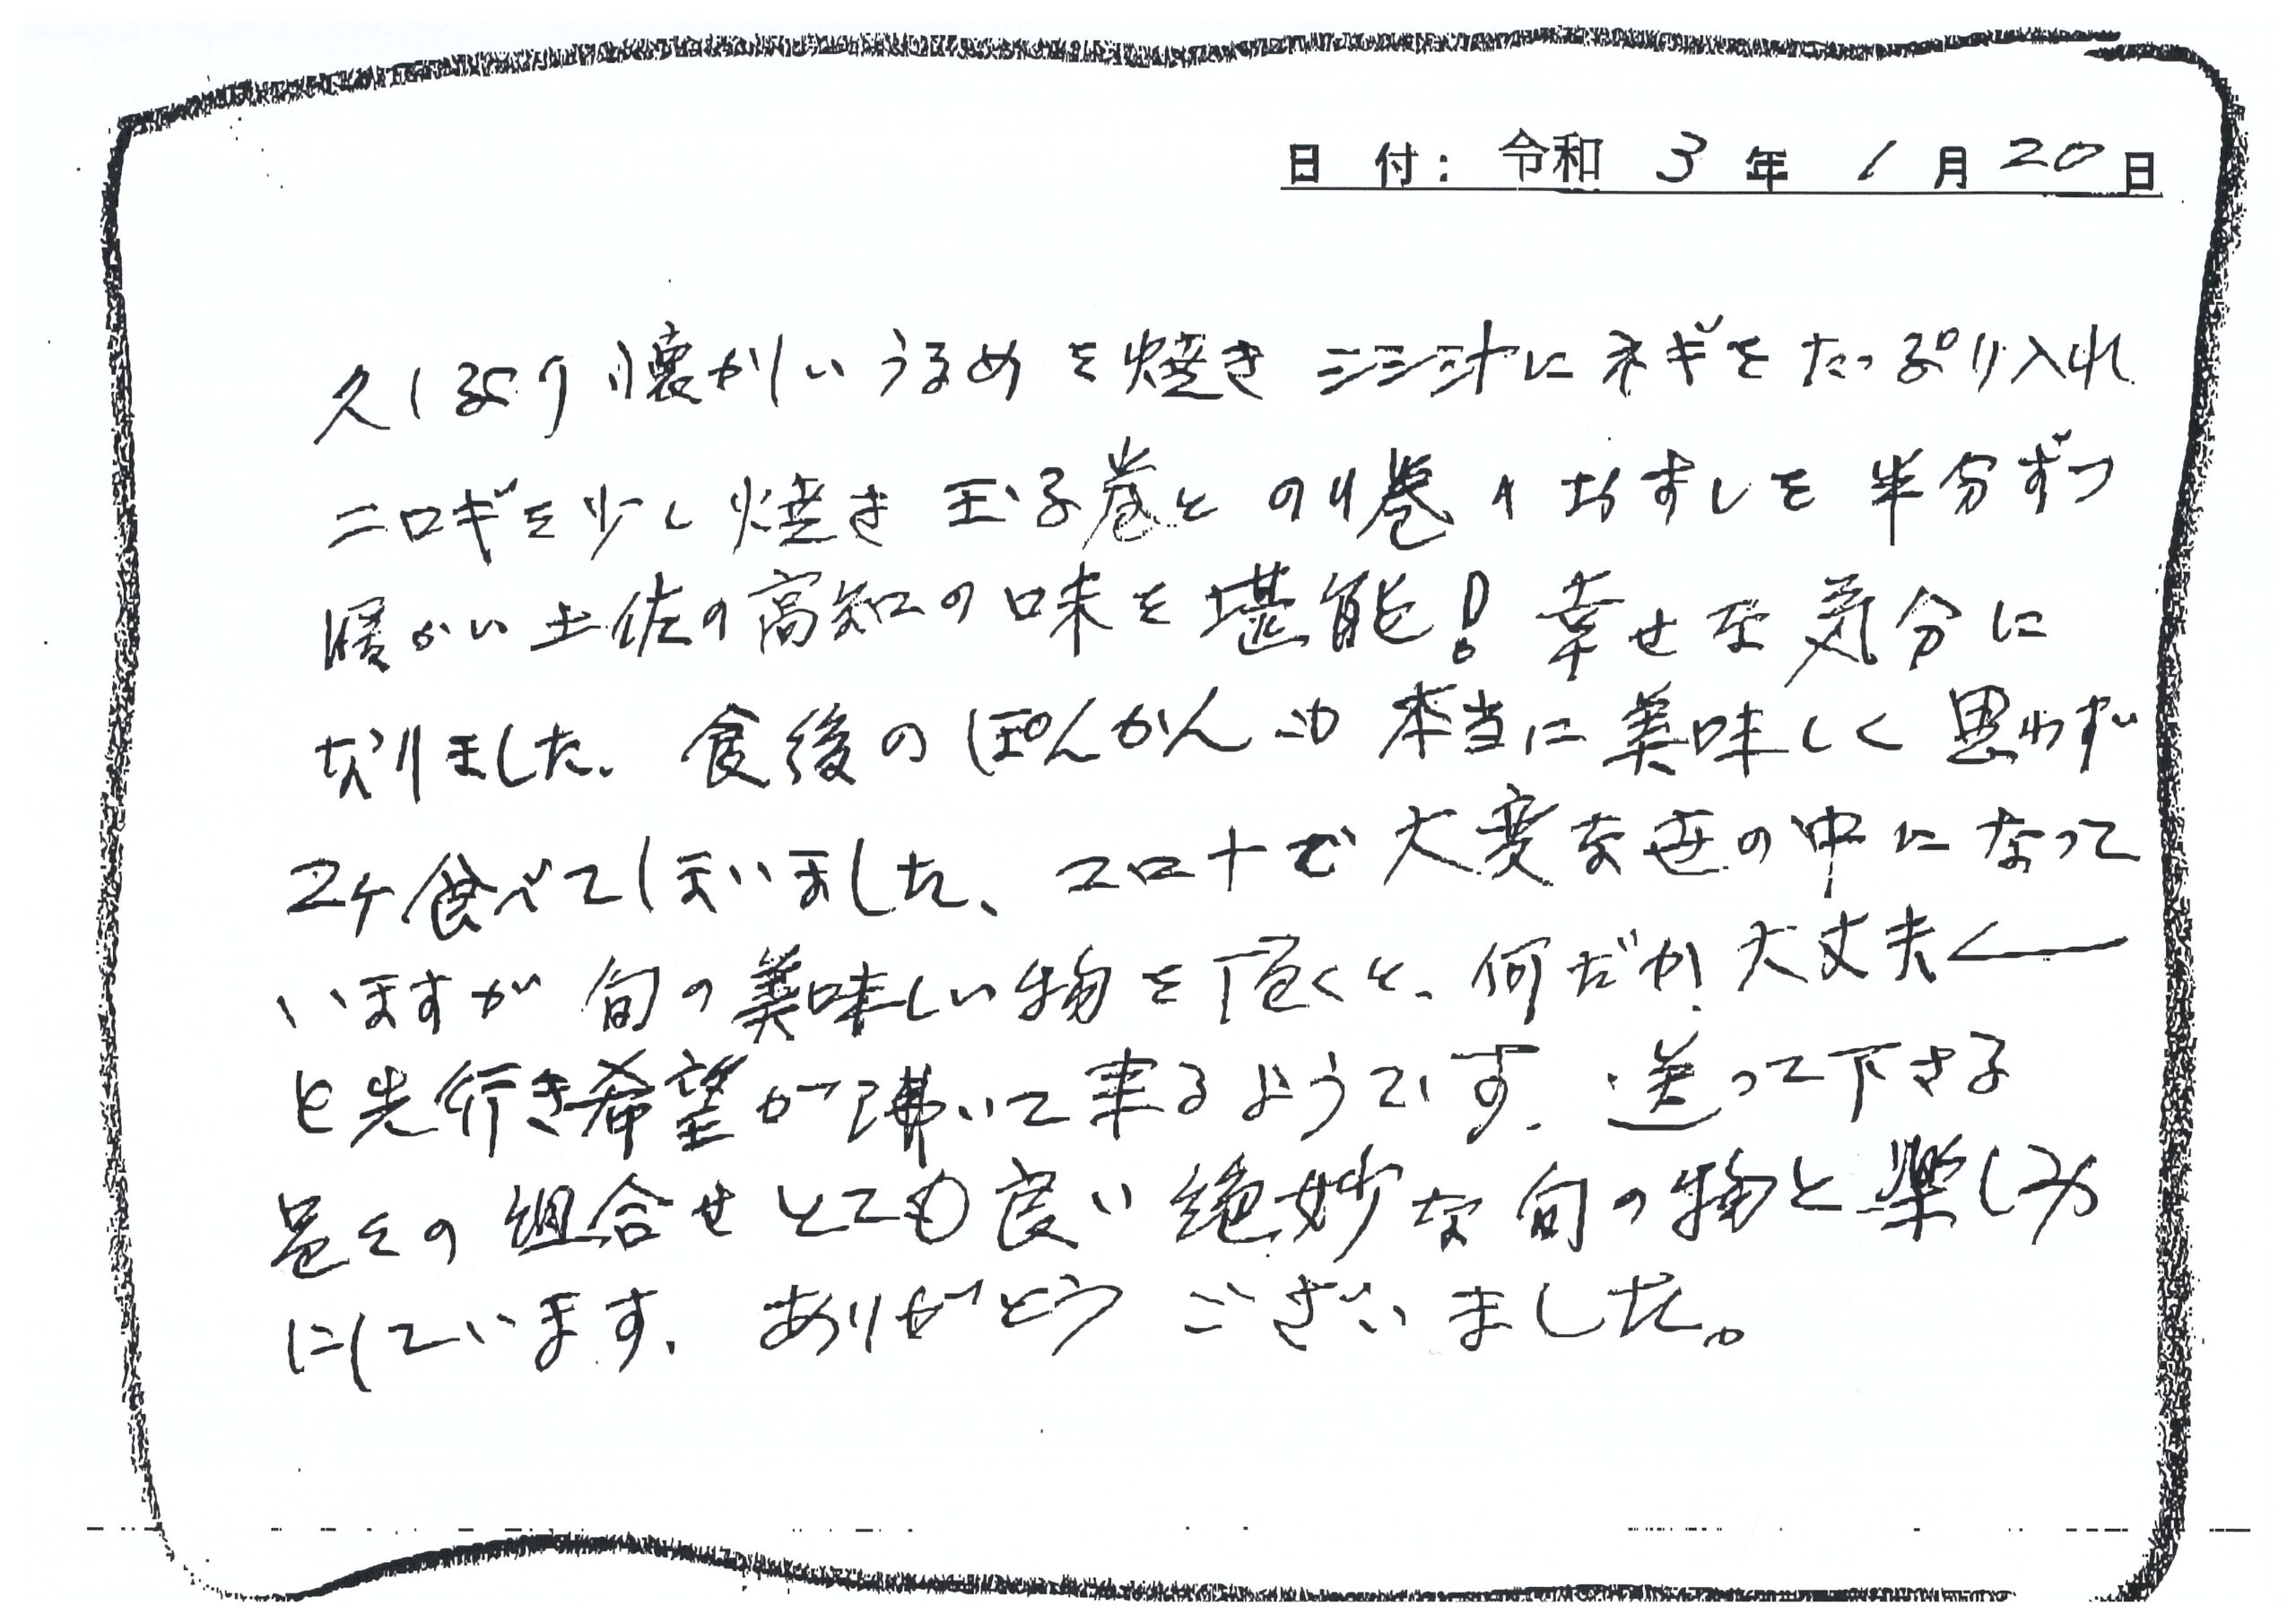 日 付: 令和 3 年 1 月 20 日
久しぶり 懐かしい うるめ を 焼き シシ汁に ネギを たっぷり入れ
ニロギを少し 焼き 玉子巻と のり巻 おすしを 半分ずつ
暖かい 土佐の高知の味を堪能! 幸せな気分に
なりました. 食後のぽんかんも 本当に美味しく 思わず
2ケ食べてしまいました、コロナで大変な世の中になって
いますが 旬の美味しい物を頂くと、何だか大丈夫〱
と先行き希望が沸いて来るようです. 送って下さる
品々の組合せとても良い絶妙な旬の物と楽しみ
にしています. ありがとう ございました。